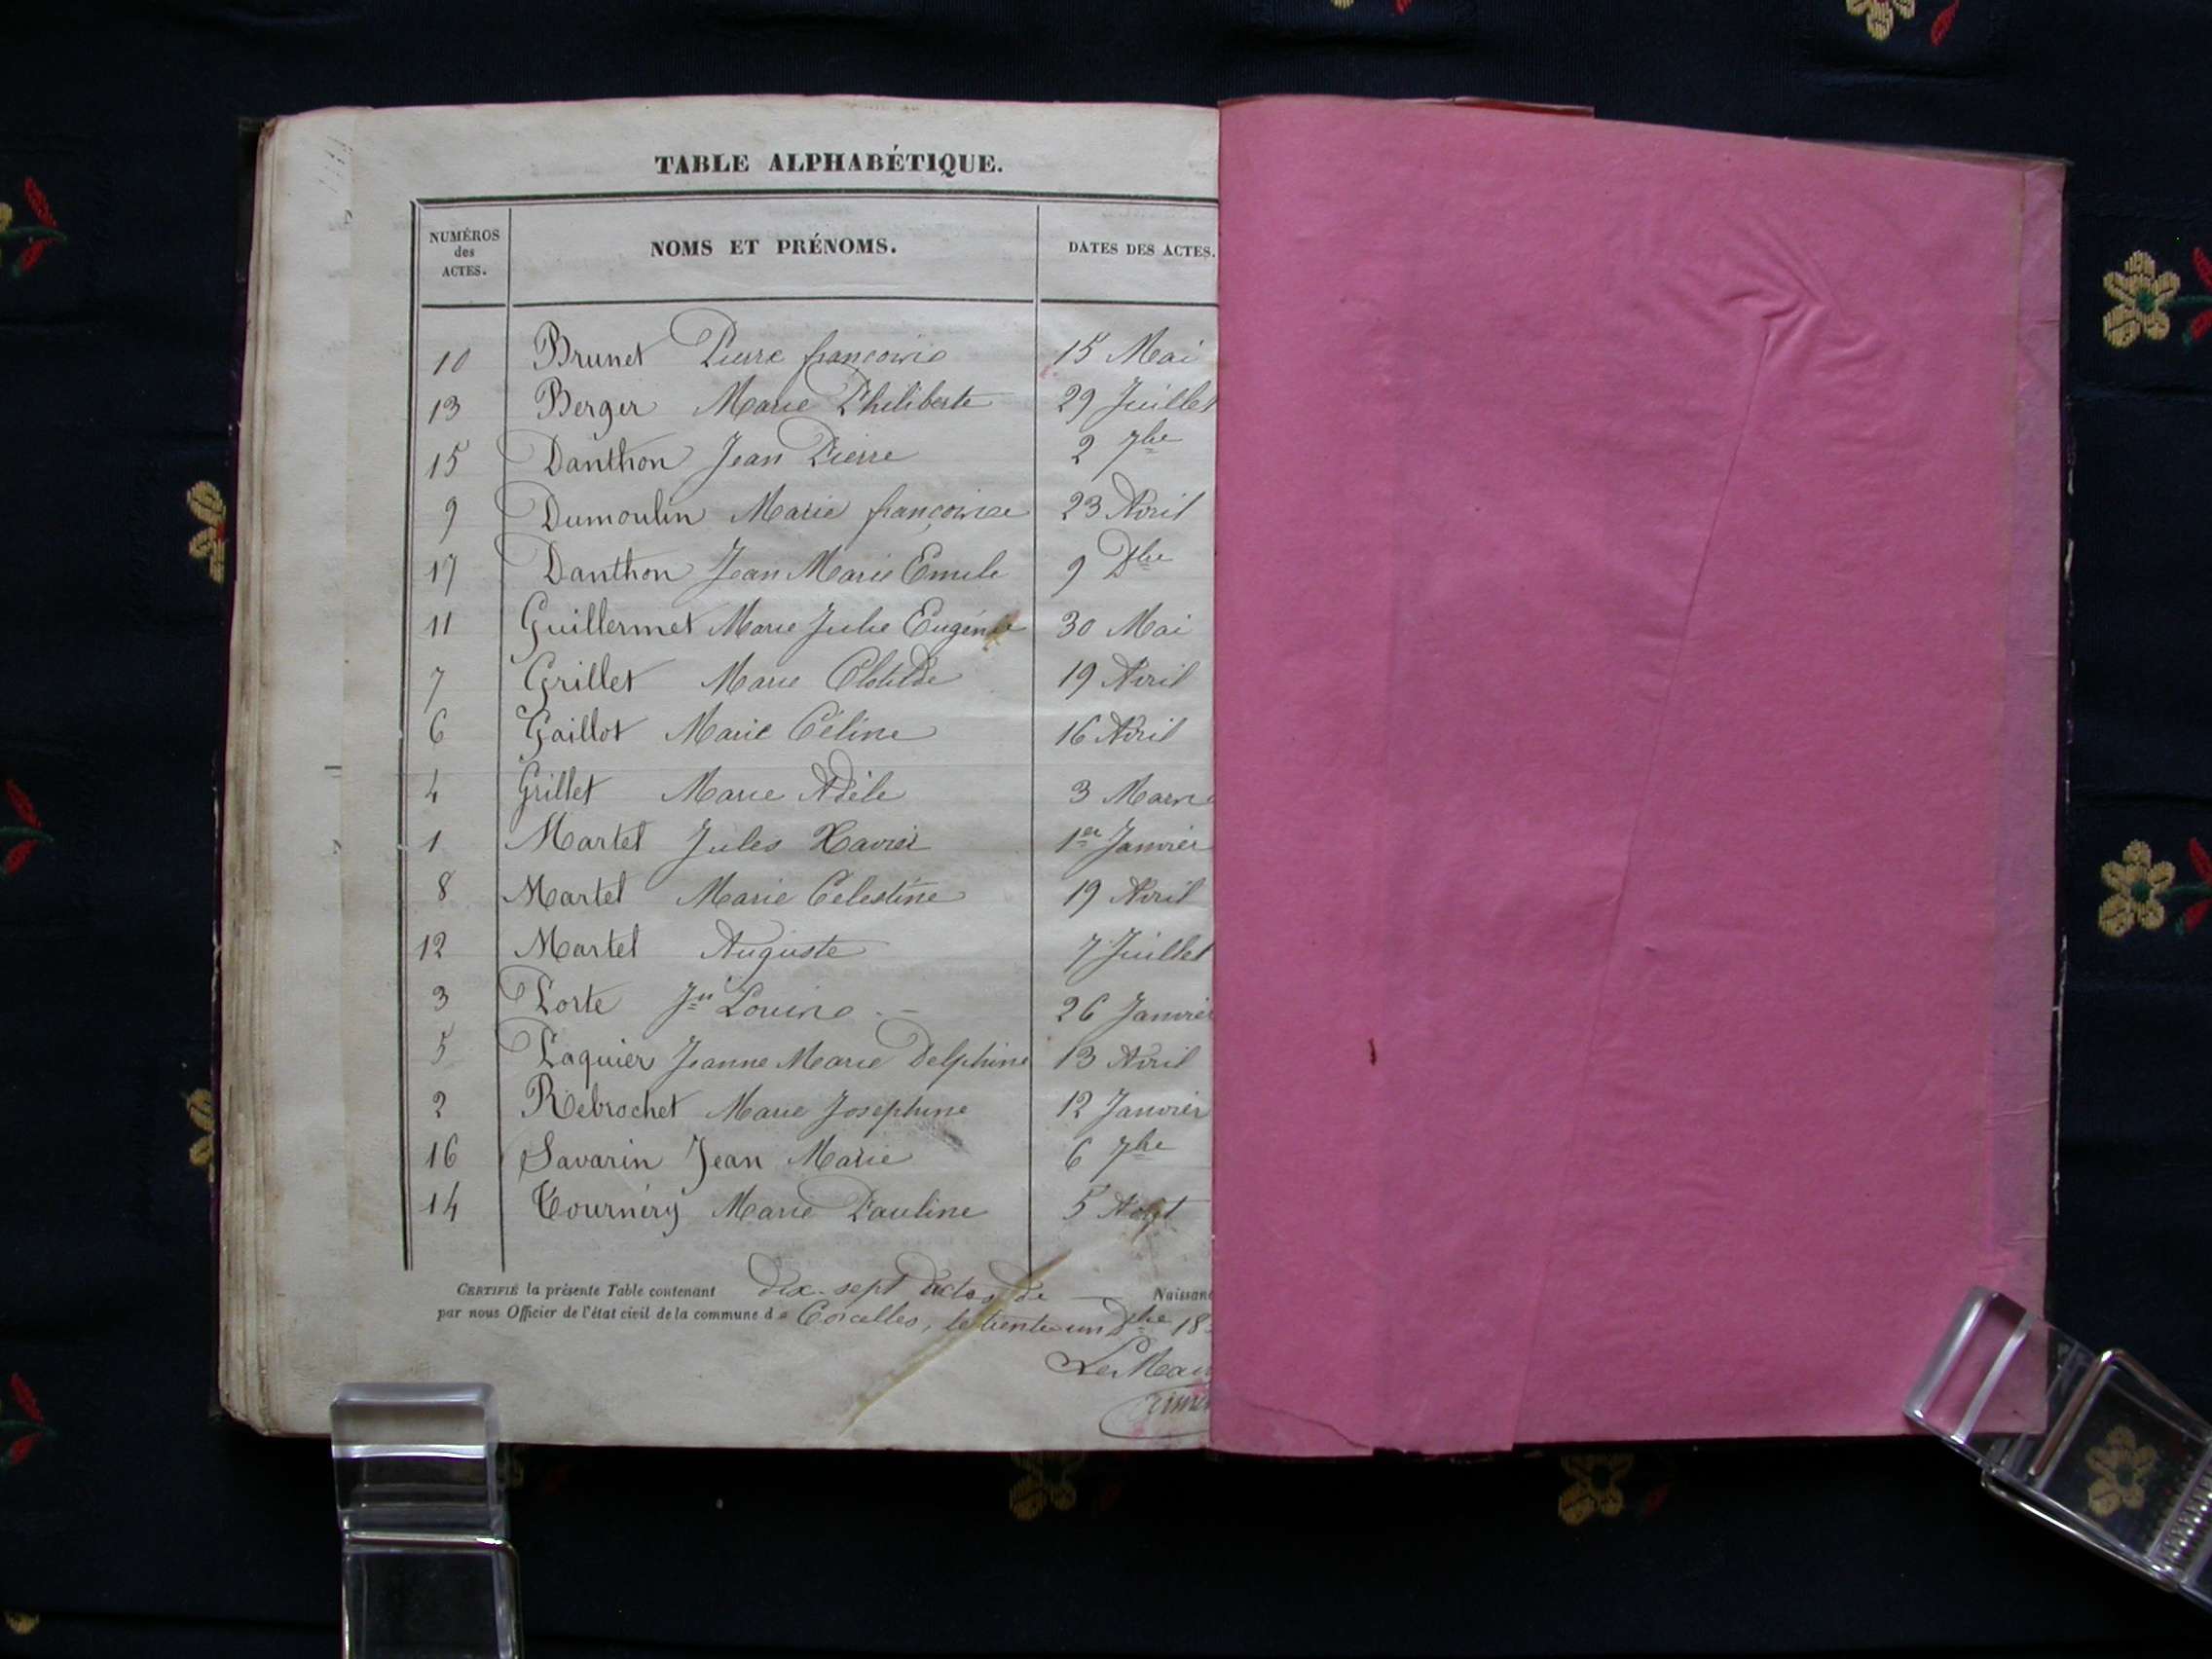 TABLE ALPHABÉTIQUE.
NUMÉROS des ACTES. NOMS ET PRÉNOMS. DATES DES ACTES.
10 Brunet Pierre françois 15 Mai
13 Berger Marie Philiberte 29 Juillet
15 Danthon Jean Pierre 2 7bre
9 Dumoulin Marie françoise 23 Avril
17 Danthon Jean Marie Emile 9 Xbre
11 Guillermet Marie Julie Eugénie 30 Mai
7 Grillet Marie Clotilde 19 Avril
6 Gaillot Marie Céline 16 Avril
4 Grillet Marie Adèle 3 Mars
1 Martel Jules Xavier 1er Janvier
8 Martel Marie Célestine 19 Avril
12 Martel Auguste 7 Juillet
3 Porte Jn Louis 26 Janvier
5 Paquier Jeanne Marie Delphine 13 Avril
2 Rebrochet Marie Josephine 12 Janvier
16 Savarin Jean Marie 6 7bre
14 Tournery Marie Pauline 5 Août
CERTIFIÉ la présente Table contenant dix-sept actes de Naissan
par nous Officier de l'état civil de la commune de Corcelles, le trente un Xbre 18
Le Mai